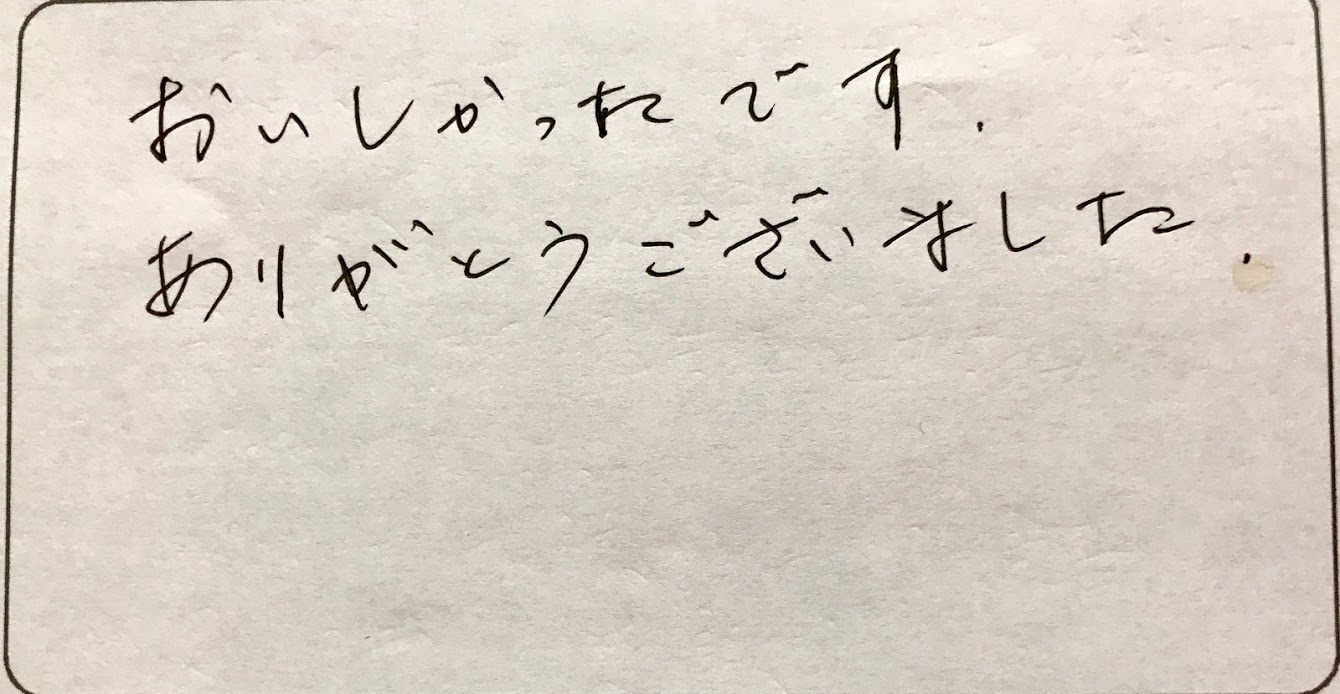 おいしかったです.
ありがとうございました.